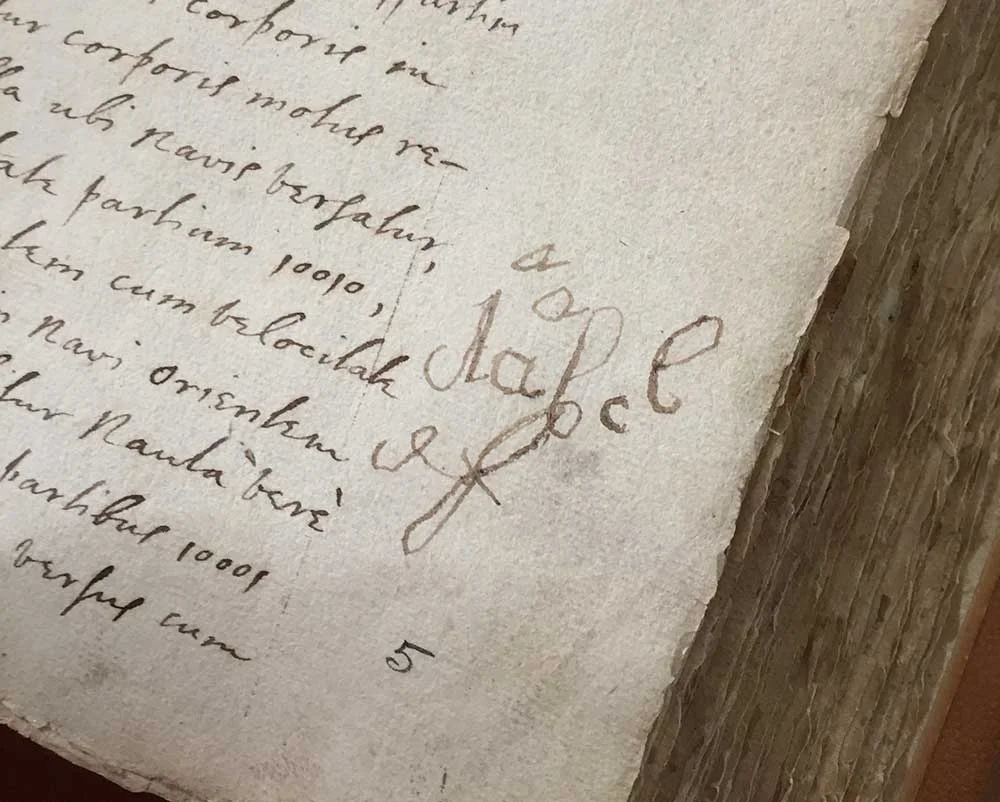 corporis in
tur corporis motus re-
lla ubi Navis versatur,
partium 10010,
cum velocitate
Navi orientem
tur Nauta verè
partibus 10001
versus cum
a
a
c l
5